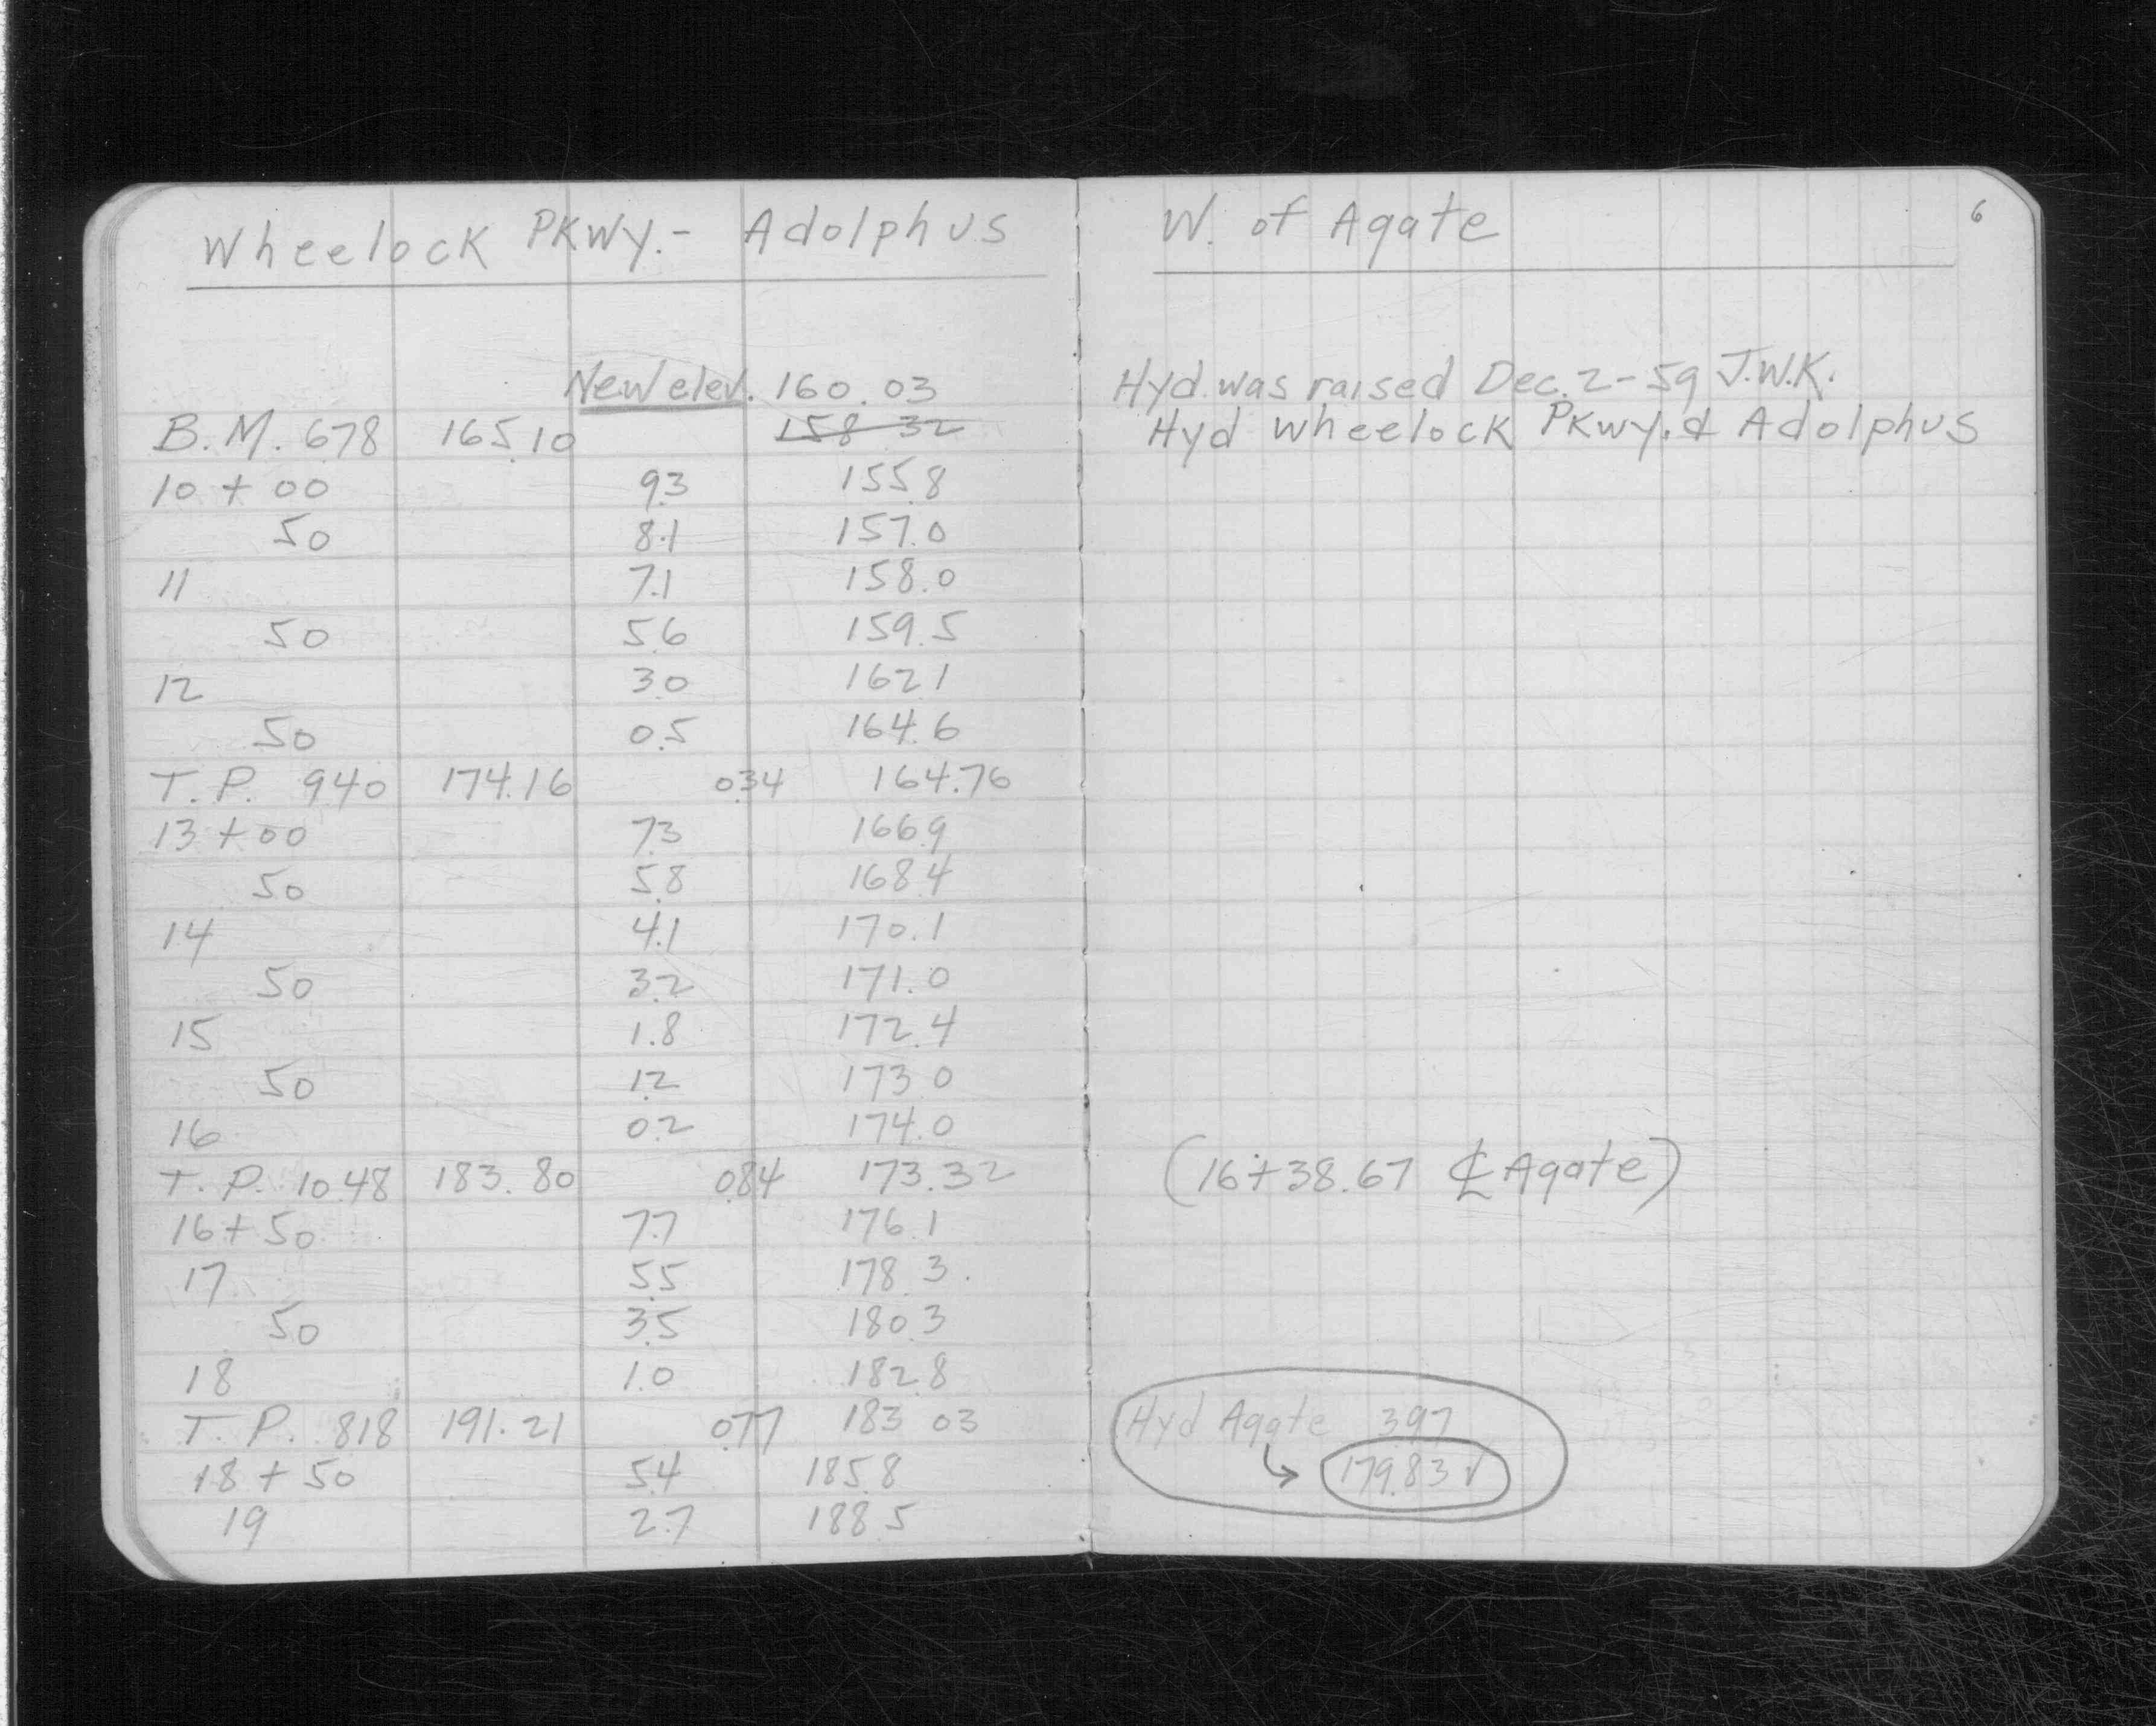 Wheelock PKWY.- Adolphus
New elev. 160.03
B.M. 678 165.10 158 32
10 + 00 9.3 155.8
50 8.1 157.0
11 7.1 158.0
50 5.6 159.5
12 3.0 162.1
50 0.5 164.6
T.P. 940 174.16 0.34 164.76
13 + 00 7.3 166.9
50 5.8 168.4
14 4.1 170.1
50 3.2 171.0
15 1.8 172.4
50 1.2 173.0
16 0.2 174.0
T.P. 10.48 183.80 0.84 173.32
16 + 50 7.7 176.1
17 5.5 178.3
50 3.5 180.3
18 1.0 182.8
T.P. 818 191.21 0.77 183 03
18 + 50 5.4 185.8
19 2.7 188.5
W. of Agate
6
Hyd. was raised Dec. 2-59 J.W.K.
Hyd Wheelock PKWY. & Adolphus
(16+38.67 ℄ Agate)
Hyd Agate 397
↳ 179.83 √